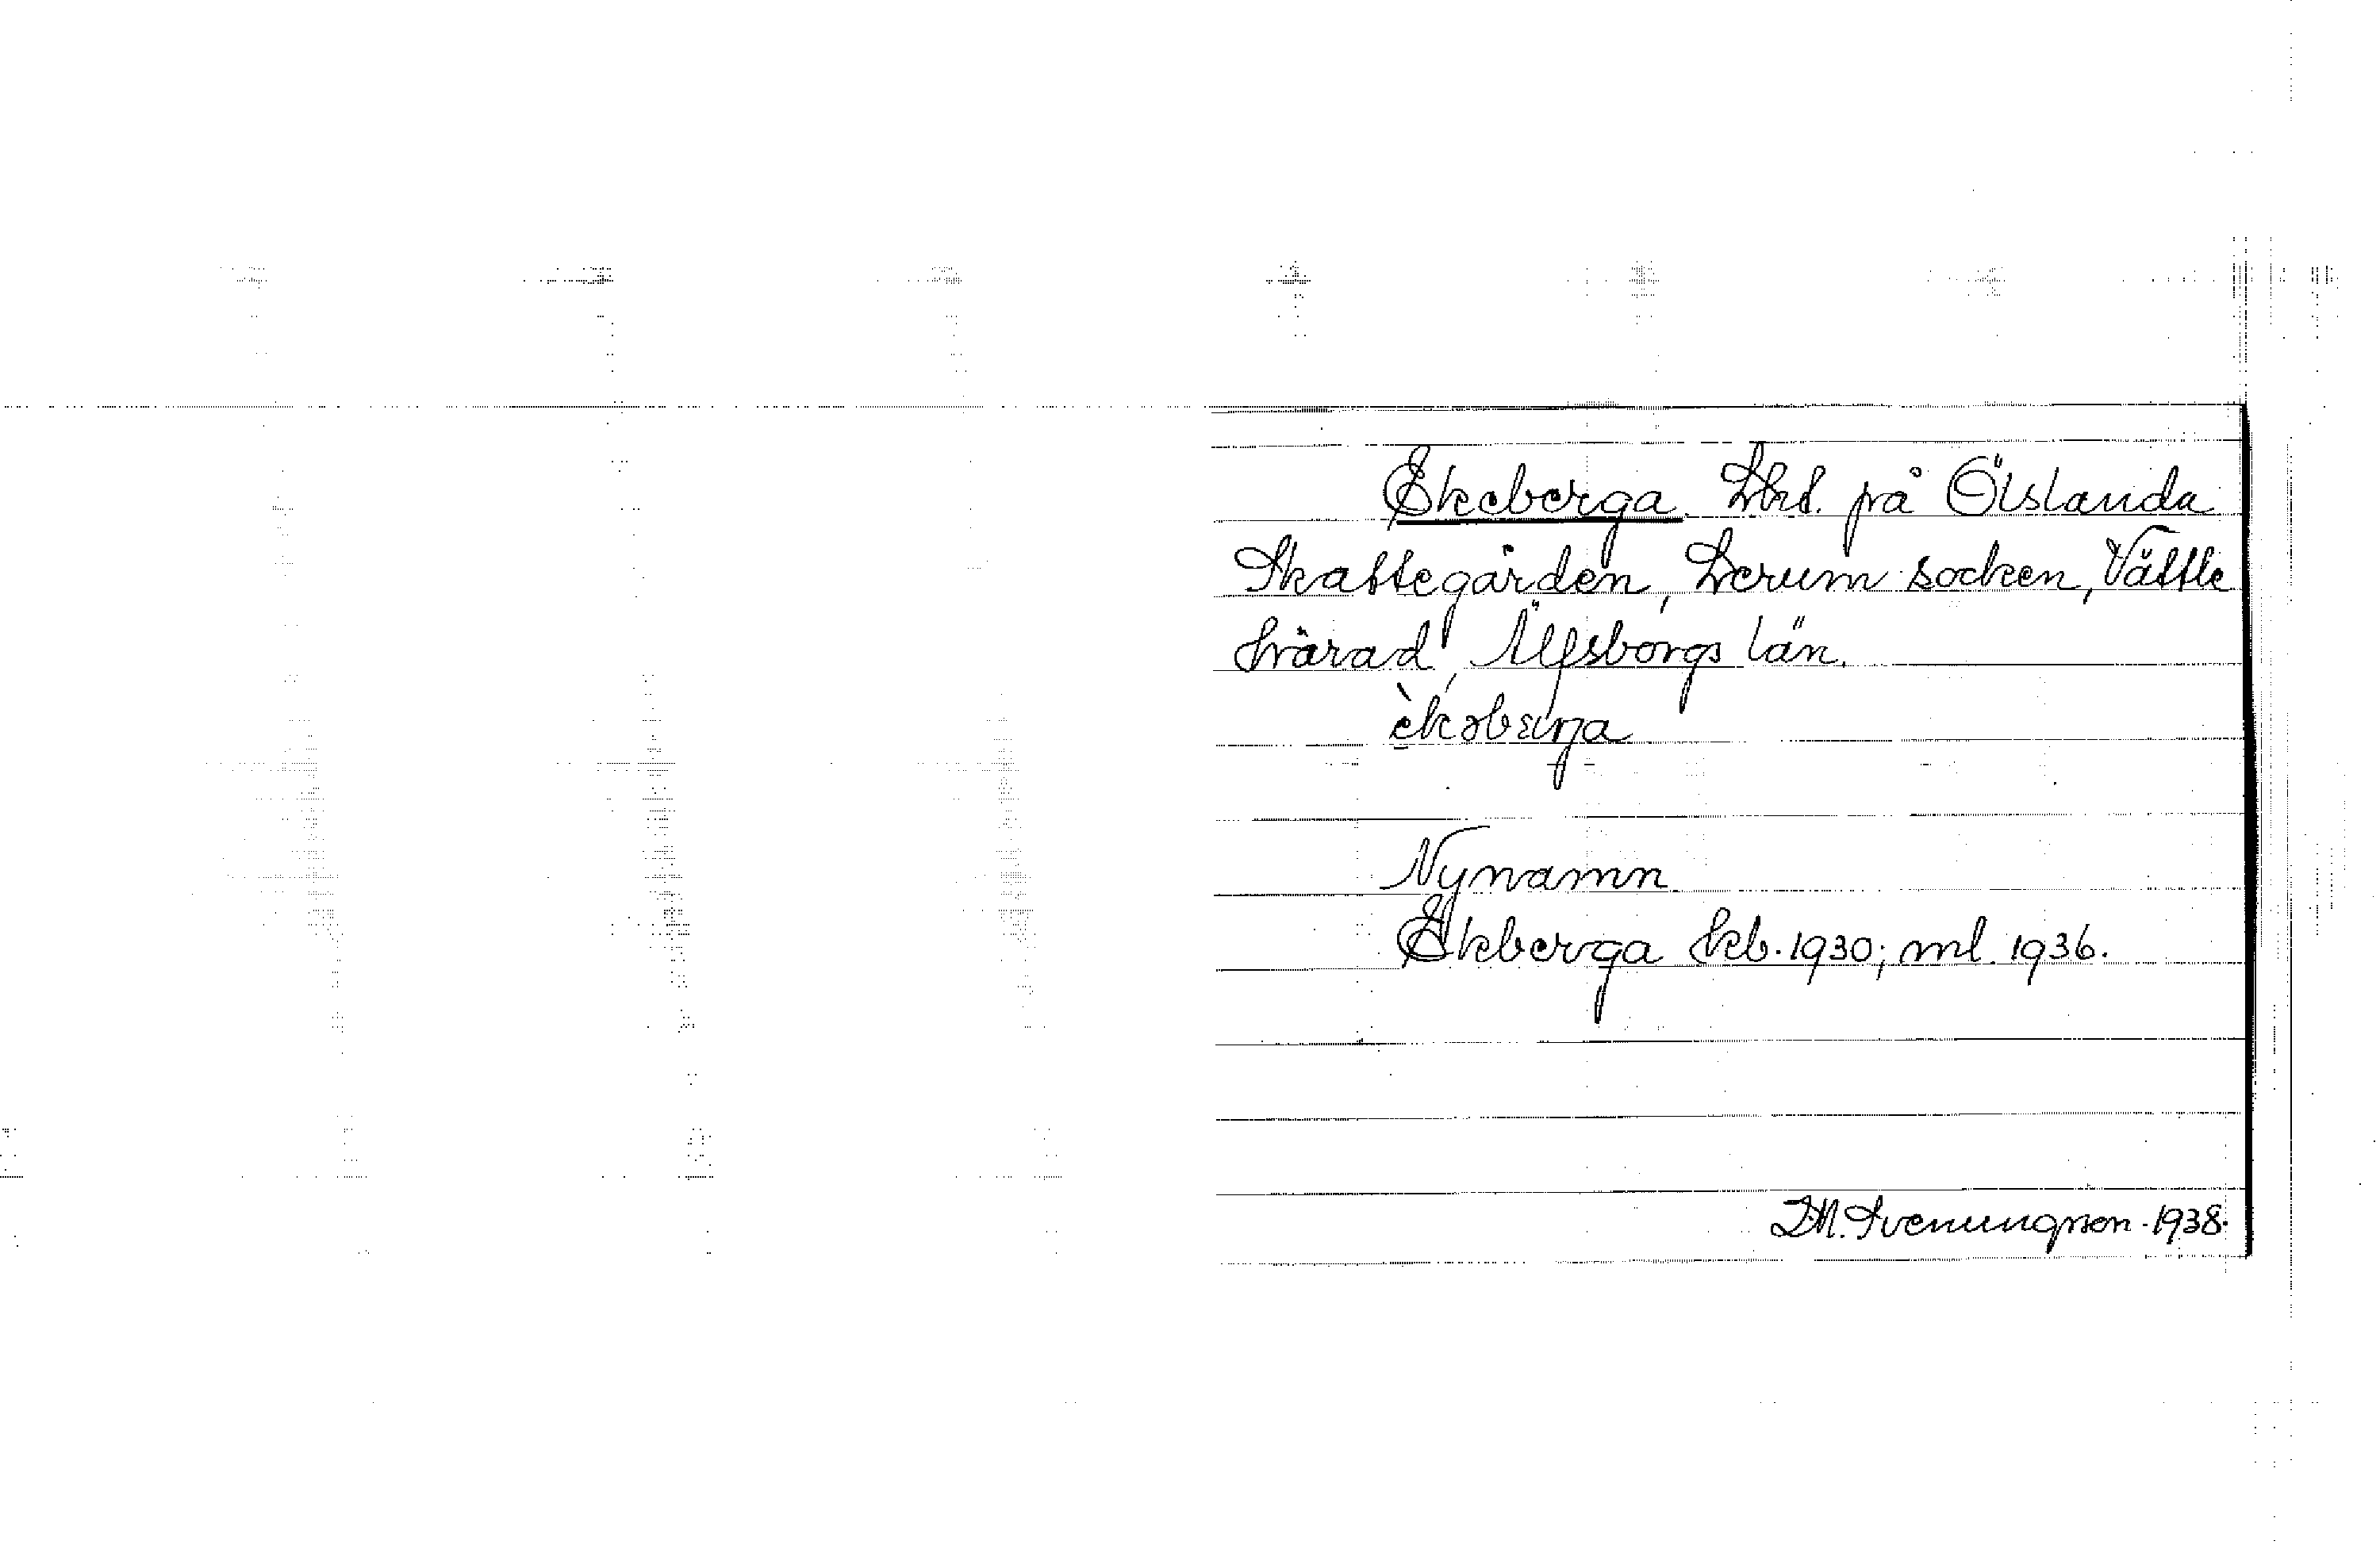 Ekeberga. Lht. på Ölslanda
Skattegården, Lerum socken, Vättle
härad, Älfsborgs län.
Nynamn
Ekberga kb. 1930; ml. 1936.
I.M. Svenungsson. 1938.